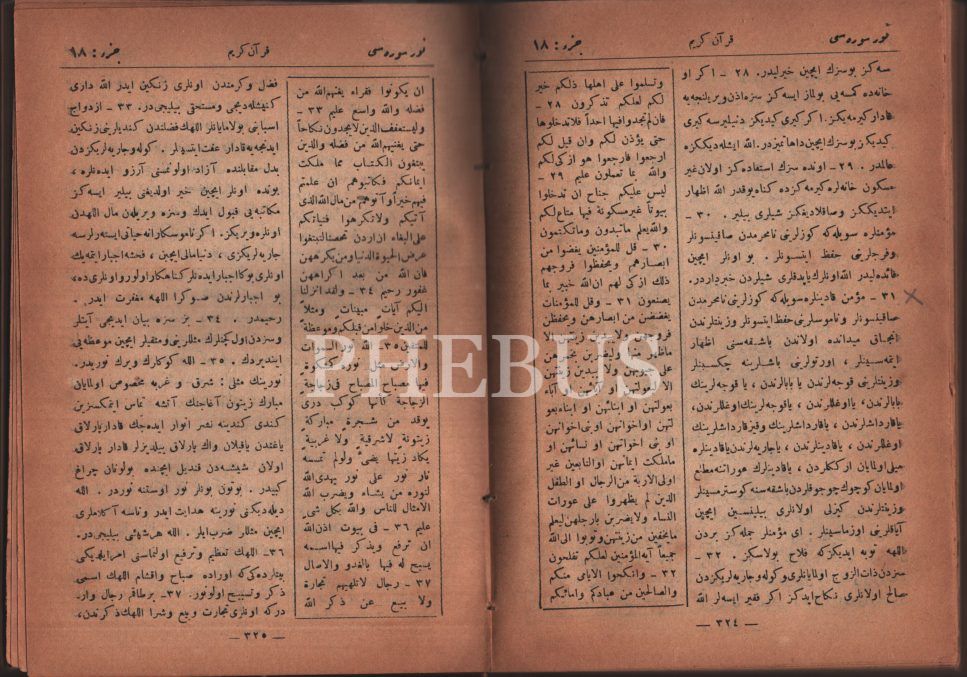 نور سوره سی قرآن كريم جزء : ١٨
سه كز بوسزك ايچين خيرليدر. ٢٨ - اكر او
خانه ده كمسه يی بولماز ايسه كز سزه اذن ويريلنجه يه
قادار كيرمه يكز. اكر كيری كيديكز دنيليرسه كيری
كيديكز بوسزك ايچين داها تميزدر. الله ايشله ديككزه
عالمدر . ٢٩ - اونده سزك استفاده كز اولان غير
مسكون خانه لره كيرمه كزده كناه يوقدر الله اظهار
ايتديككز وصاقلاديغكز شيلری بيلير . ٣٠ -
مؤمنلره سويله كه كوزلرينی نامحرمدن صاقينسونلر
وفرجلرينی حفظ ايتسونلر . بو اونلر ايچين
فائده ليدر الله اونلرك ياپدقلری شيلردن خبرداردر.
٣١ - مؤمن قادينلره سويله كه كوزلرينی نامحرمدن
صاقينسونلر وناموسلرينی حفظ ايتسونلر وزينتلرندن
انجاق ميدانده اولاندن باشقه سنی اظهار
ايتمه سينلر ، اورتولرينی باشلرينه چكسينلر
وزينتلرينی قوجه لرندن يا بابالرندن ، يا قوجه لرينك
بابالرندن، يا اوغللرندن ، يا قوجه لرينك اوغللرندن،
يا قارداشلرندن ، يا قارداشلرينك وقيز قارداشلرينك
اوغللرندن ، يا قادينلرندن ، يا جاريه لرندن يا قادينلره
ميلی اولمايان ارككلردن ، يا قادينلرك عورا تنه مطلع
اولمايان كوچوك چوجوقلردن باشقه سنه كوسترمسينلر
وزينتلرندن كيزلی اولانلری بيلينسين ايچين
آياقلرينی اورماسينلر . ای مؤمنلر جمله كز بردن
اللهه توبه ايديكزكه فلاح بولاسكز . ٣٢ -
سزدن ذات الزوج اولمايانلری وكوله وجاريه لريكزدن
صالح اولانلری نكاح ايدكز اكر فقير ايسه لر الله
وتسلموا على اهلها ذلكم خير
لكم لعلكم تذكرون ٢٨ -
فان لم تجدوا فيها احداً فلا تدخلوها
حتى يؤذن لكم وان قيل لكم
ارجعوا فارجعوا هو ازكى لكم
والله بما تعملون عليم ٢٩ -
ليس عليكم جناح ان تدخلوا
بيوتاً غير مسكونة فيها متاع لكم
والله يعلم ماتبدون وماتكتمون
٣٠ - قل للمؤمنين يغضوا من
ابصارهم ويحفظوا فروجهم
ذلك ازكى لهم ان الله خبير بما
يصنعون ٣١ - وقل للمؤمنات
يغضضن من ابصارهن ويحفظن
فروجهن ولا يبدين زينتهن الا
ماظهر منها وليضربن بخمرهن
على جيوبهن ولا يبدين زينتهن
الا لبعولتهن او آبائهن او آباء
بعولتهن او ابنائهن او ابناء بعو
لتهن او اخوانهن او بنی اخوانهن
او بنی اخواتهن او نسائهن او
ماملكت ايمانهن او التابعين غير
اولی الاربة من الرجال او الطفل
الذين لم يظهروا على عورات
النساء ولا يضربن بارجلهن ليعلم
مايخفين من زينتهن وتوبوا الى الله
جميعاً آيه المؤمنين لعلكم تفلحون
٣٢ - وانكحوا الايامى منكم
والصالحين من عبادكم وامائكم
— ٣٢٤ —
نور سوره سی قرآن كريم جزء : ١٨
ان يكونوا فقراء يغنهم الله من
فضله والله واسع عليم ٣٣ -
وليستعفف الذين لا يجدون نكاحاً
حتى يغنيهم الله من فضله والذين
يبتغون الكتاب مما ملكت
ايمانكم فكاتبوهم ان علمتم
فيهم خيراً وآتوهم من مال الله الذی
آتيكم ولاتكرهوا فتياتكم
على البغاء ان اردن تحصنا لتبتغوا
عرض الحيوة الدنيا ومن يكرههن
فان الله من بعد اكراههن
غفور رحيم ٣٤ - ولقد انزلنا
اليكم آيات مبينات ومثلاً
من الذين خلوا من قبلكم وموعظة
للمتقين ٣٥ - الله نور السموات
والارض مثل نوره كمشكوة
فيها مصباح المصباح فی زجاجة
الزجاجة كأنها كوكب دری
يوقد من شجرة مباركة
زيتونة لاشرقية ولا غربية
يكاد زيتها يضیء ولولم تمسسه
نار نور على نور يهدی الله
لنوره من يشاء ويضرب الله
الامثال للناس والله بكل شیء
عليم ٣٦ - فی بيوت اذن الله
ان ترفع ويذكر فيها اسمه
يسبح له فيها بالغدو والاصال
٣٧ - رجال لاتلهيهم تجارة
ولا بيع عن ذكر الله
فضل وكرمندن اونلری زنكين ايدر الله داری
كنيشله ديجی ومستحقی بيليجی در. ٣٣ - ازدواج
اسبابنی بولامايانلر اللهك فضلندن كنديلرينی زنكين
ايدنجه يه قادار عفت ايتسينلر . كوله وجاريه لريكزدن
بدل مقابلنده آزاد اولونمسنی آرزو ايدنلره ،
بونده اونلر ايچين خير اولديغنی بيلير ايسه كز
مكاتبه يی قبول ايدك وسزه ويريلن مال اللهدن
اونلره ويريكز. اكر ناموسكارانه حياتی ايسته رلرسه
جاريه لريكزی ، دنيا مالی ايچين ، فحشه اجبار ايتمه يك
اونلری بوكا اجبار ايده نلر كناهكار اولور و اونلری ده ،
بو اجبارلرندن صوكرا اللهه مغفرت ايدر .
رحيمدر . ٣٤ - بز سزه بيان ايديجی آيتلر
وسزدن اول كچنلرك مثللرينی ومتقيلر ايچين موعظه يی
اينديردك . ٣٥ - الله كوكلرك ويرك نوريدر.
نورينك مثلی : شرقی و غربه مخصوص اولمايان
مبارك زيتون آغاجنك آتشه تماس ايتمكسزين
كندی كندينه نشر انوار ايده جك قادار پارلاق
ياغندن ياقيلان واك پارلاق ييلديزلر قادار پارلاق
اولان شيشه دن قنديل ايچنده بولونان چراغ
كبيدر . بوتون بونلر نور اوستنه نوردر . الله
ديله ديكنی نورينه هدايت ايدر وناسه آكلاملری
ايچين مثللر ضرب ايلر . الله هرشيئی بيليجی در.
٣٦- اللهك تعظيم وترفيع اولنماسنی امر ايله ديكی
بيتلرده كی كه اوراده صباح واقشام اللهك اسمی
ذكر وتسبيح اولونور. ٣٧- برطاقم رجال وار-
دركه اونلری تجارت وبيع وشرا اللهك ذكرندن،
— ٣٢٥ —
PHEBUS